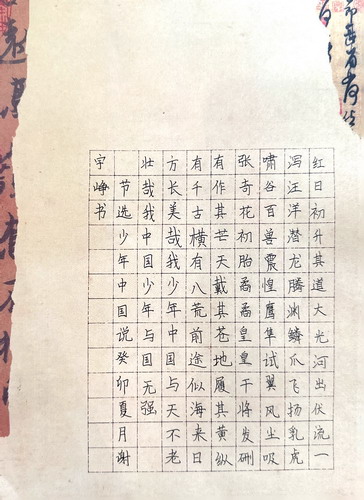 红日初升其道大光河出伏流一
泻汪洋潜龙腾渊鳞爪飞扬乳虎
啸谷百兽震惶鹰隼试翼风尘吸
张奇花初胎矞矞皇皇干将发硎
有作其芒天戴其苍地履其黄纵
有千古横有八荒前途似海来日
方长美哉我少年中国与天不老
壮哉我中国少年与国无强
节选少年中国说癸卯夏月谢
宇峥书